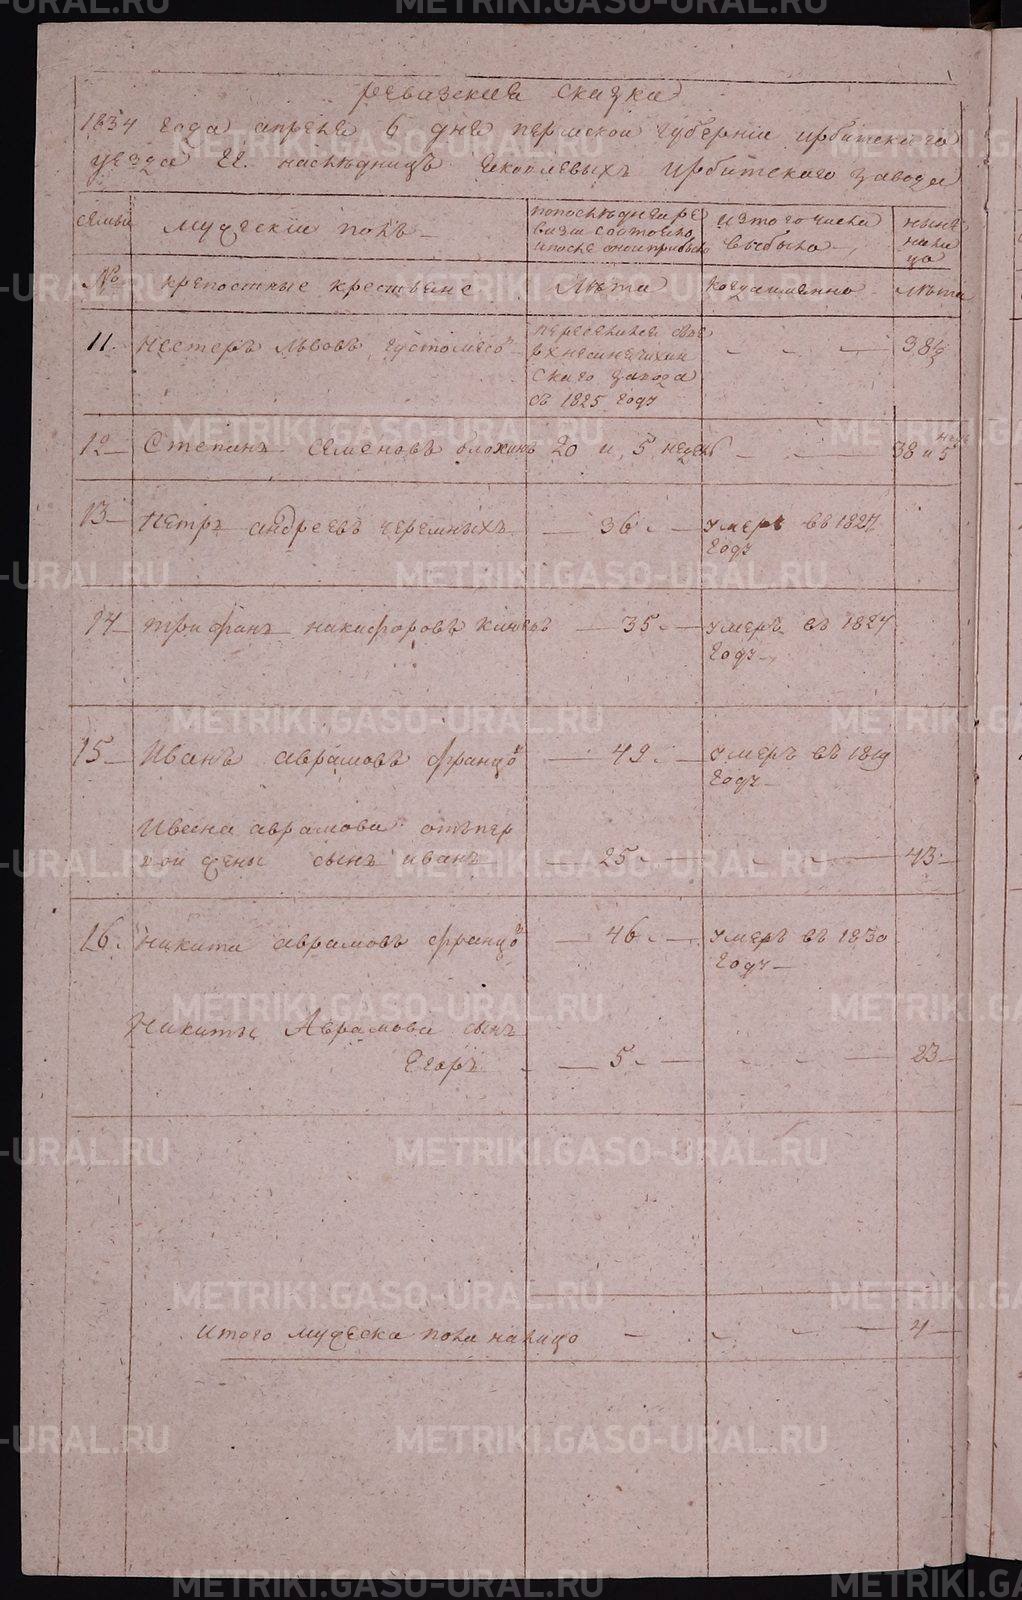 ревизская сказка
1834 года апреля 6 дня пермской губернии ирбитского
уезда гг. наследницъ яковлевыхъ ирбитского завода
семьи
мужескiй полъ
попоследней ре
визiи состояло
и после оной прибыло
изтого числа
выбыло
ныне
нали
цо
№
крепостные крестьяне
Лета
когда имянно
лета
11. нестеръ львовъ густомесо — 38½
переселился
скаго завода
въ 1825 году
12 Степанъ семеновъ блохинъ 20 и 5 недель — 38 и 5 неде
13 петръ андреевъ черемныхъ — 36 — умеръ въ 1827
году
14 трифанъ никифоровъ — 35 — умеръ въ 1827
году
15 Иванъ аврамовъ францо — 49 — умеръ въ 1819
году
Ивана аврамова отъпер
вой жены сынъ иванъ — 25 — 43
16. никита аврамовъ францо — 46 — умеръ въ 1830
году
Никиты Аврамова сынъ
Егоръ — 5 — 23
итого мужеска пола налицо — 4
METRIKI.GASO-URAL.RU